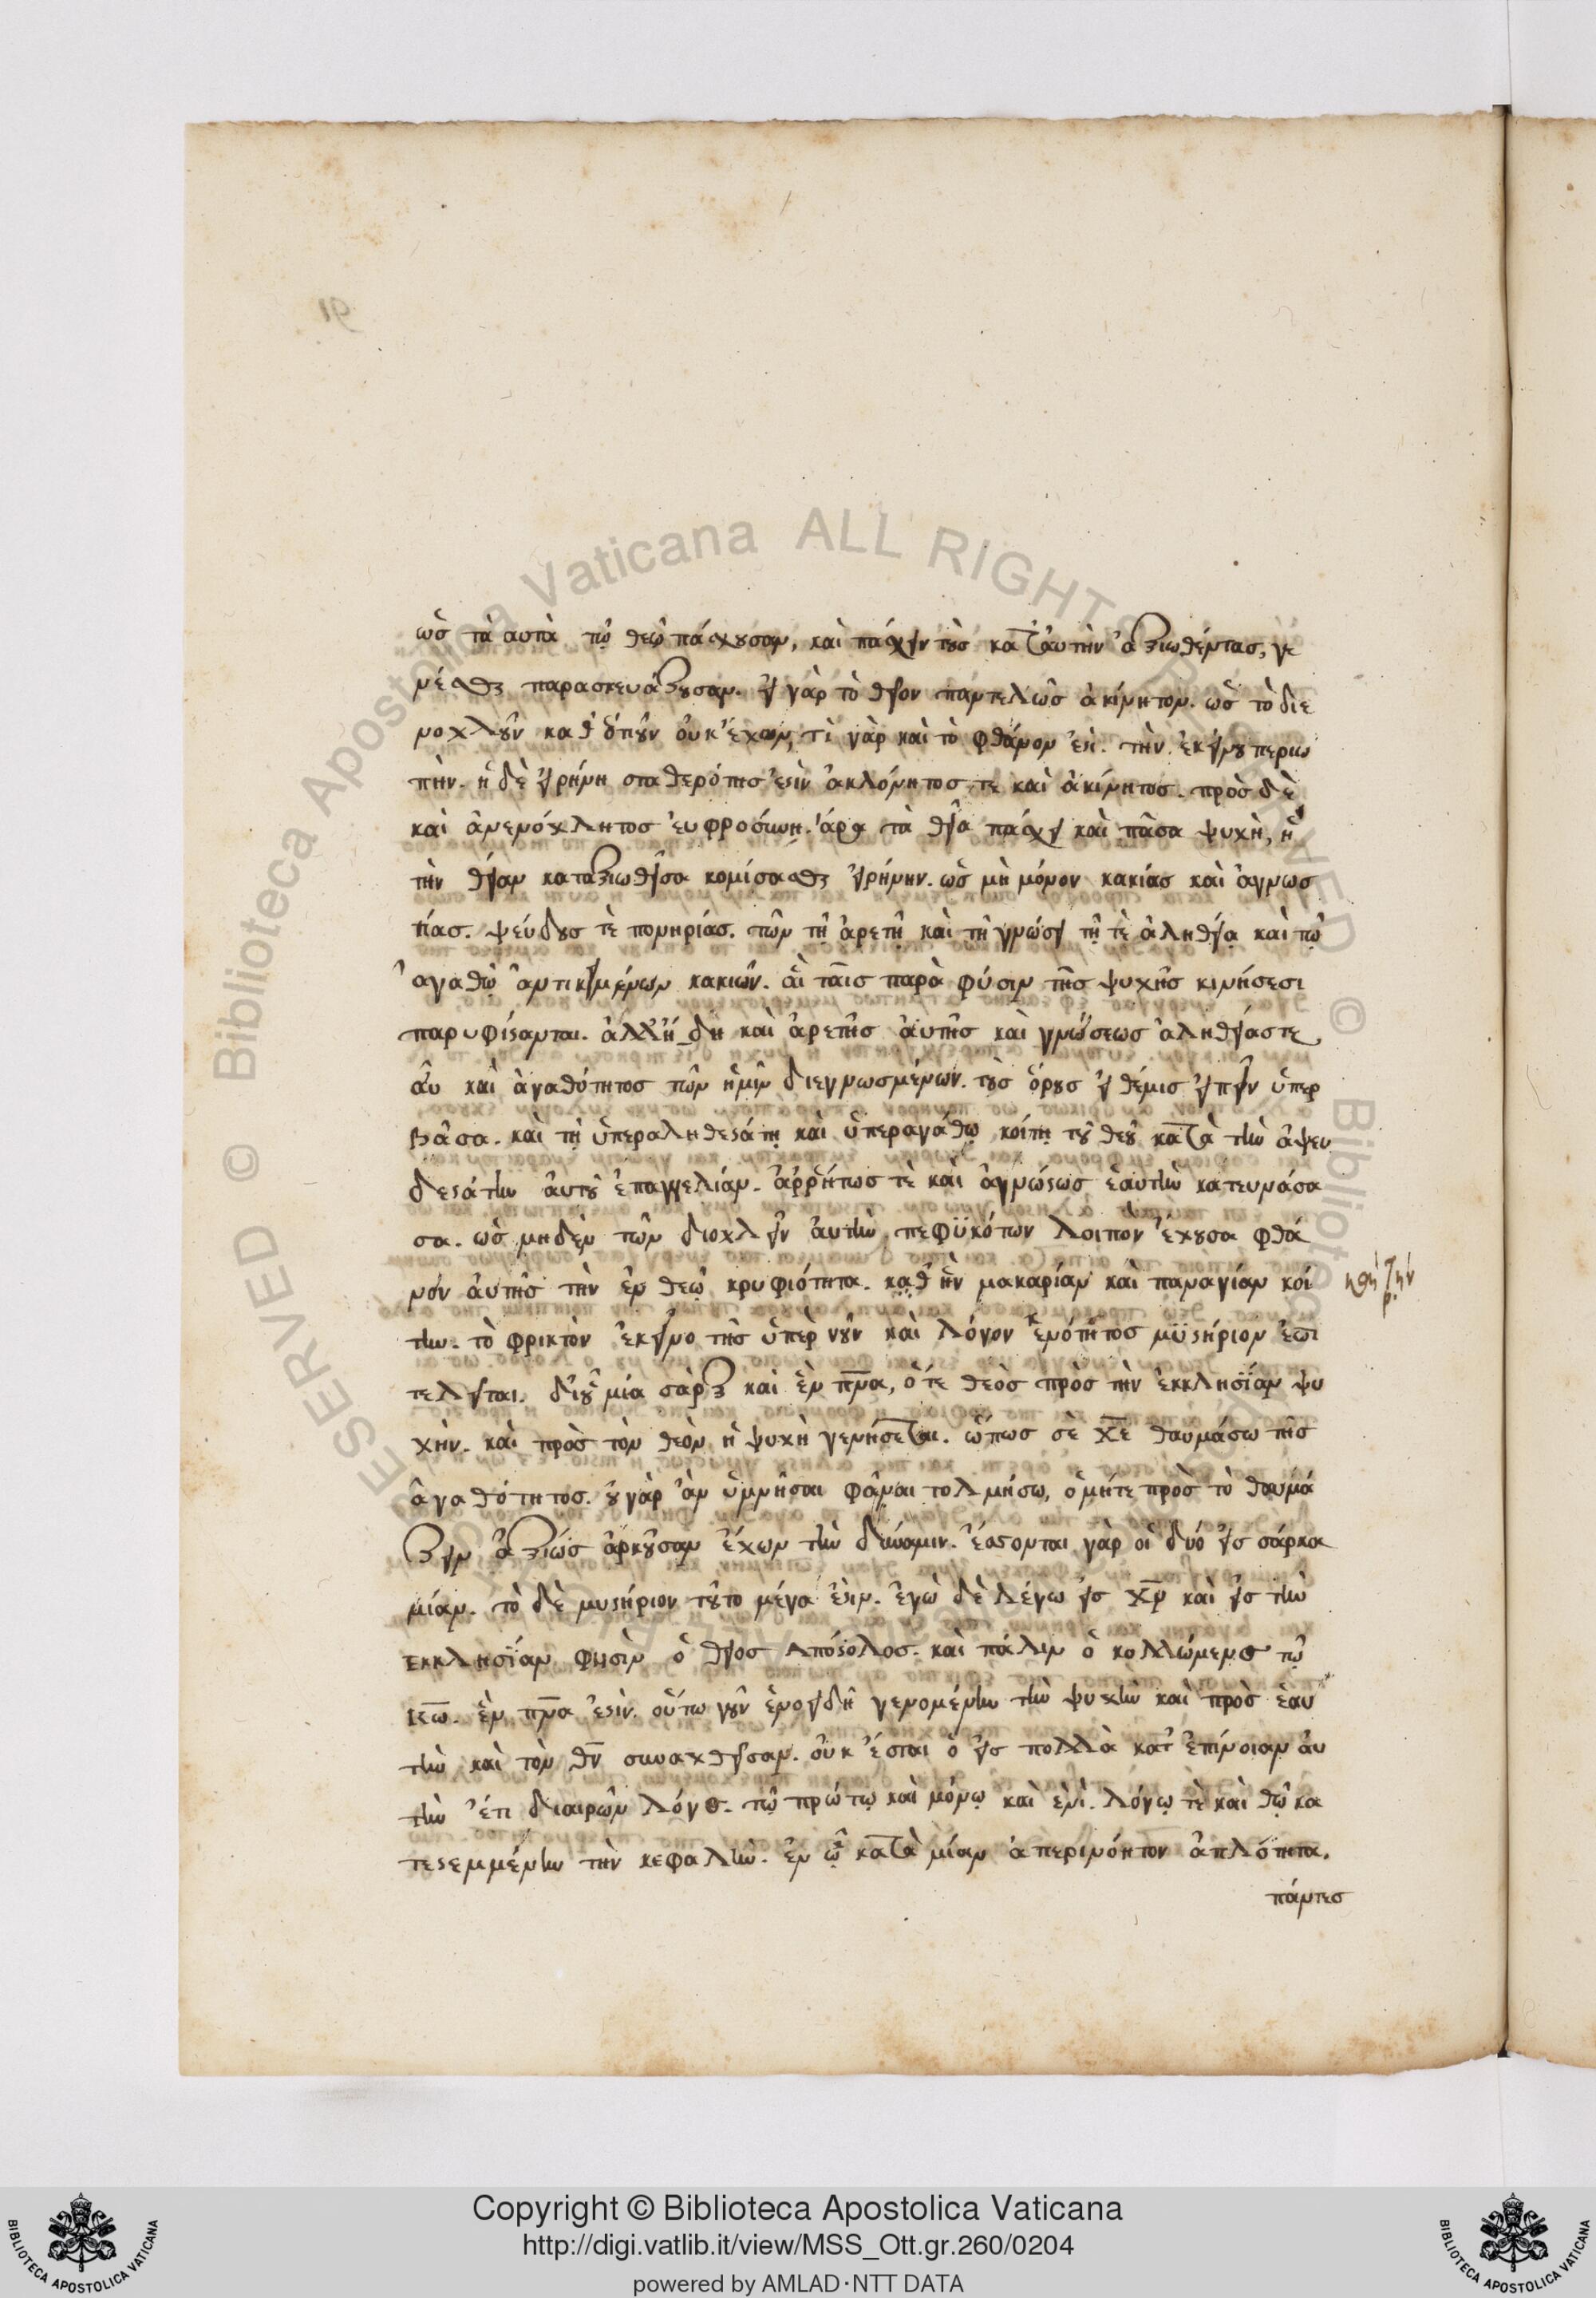 ὡς τὰ αυτὰ τῷ θεῷ πάσχουσαν, καὶ πάσχειν τοὺς κατ' ἀυτὴν ἀξιωθέντας, γε
νέσθαι παρασκευάζουσαν. εἰ γὰρ τὸ θεῖον παντελῶς ἀκίνητον. ὡς τὸ διε
νοχλοῦν καθ' ὁτιοῦν οὐκ ἔχον, τὶ γὰρ καὶ τὸ φθάνον ἐστὶ. τὴν ἐκείνου περιω
πὴν. ἡ δὲ εἰρήνη σταθερότης ἐστὶν ἀκλόνητος τε καὶ ἀκίνητος. πρὸς δὲ
καὶ ἀνενόχλητος ἐυφροσύνη. ἆρα τὰ θεῖα πάσχει καὶ πᾶσα ψυχὴ, ἡ
τὴν θείαν καταξιωθεῖσα κομίσασθαι εἰρήνην. ὡς μὴ μόνον κακίας καὶ ἀγνωσ
ίας. ψεύδους τὲ πονηρίας. τῶν τῇ ἀρετῇ καὶ τῇ γνώσει τῇ τὲ ἀληθείᾳ καὶ τῷ
ἀγαθῷ ἀντικειμένων κακιῶν. αἳ ταῖς παρὰ φύσιν τῆς ψυχῆς κινήσεσι
παρυφίστανται. ἀλλ' ἤδη καὶ ἀρετῆς ἀυτῆς καὶ γνώσεως ἀληθείας τε
ἆυ καὶ ἀγαθότητος τῶν ἡμῖν διεγνωσμένων. τοὺς ὅρους εἰ θέμις εἰπεῖν ὑπερ
βᾶσα. καὶ τῇ ὑπεραληθεστάτῃ καὶ ὑπεραγάθῳ κοίτῃ τοῦ θεοῦ κατὰ τὴν ἀψευ
δεστάτην ἀυτοῦ ἐπαγγελίαν. ἀῤῥήτως τὲ καὶ ἀγνώστως ἑαυτὴν κατευνάσα
σα. ὡς μηδὲν τῶν διοχλεῖν ἀυτὴν πεφϋκότων λοιπὸν ἔχουσα φθά
νον ἀυτῆς τὴν ἐν θεῷ κρυφιότητα. καθ' ἣν μακαρίαν καὶ παναγίαν κοί
την. τὸ φρικτὸν ἐκεῖνο τῆς ὑπὲρ νοῦν καὶ λόγον ἑνότητος μϋστήριον ἐπι
τελεῖται. δι' οὗ μία σὰρξ καὶ ἓν πνα, ὅ τε θεὸς πρὸς τὴν ἐκκλησΐαν ψυ
χὴν. καὶ πρὸς τὸν θεὸν ἡ ψυχὴ γενήσεται. ὢ πως σὲ χε θαυμάσω τῆς
ἀγαθότητος. οὐ γὰρ ἂν ὑμνῆσαι φᾶναι τολμήσω, ὁ μήτε πρὸς τὸ θαυμά
ζειν ἀξίως ἀρκοῦσαν ἔχων τὴν δύναμιν. ἔσονται γὰρ οἱ δύο εἰς σάρκα
μίαν. τὸ δὲ μυστήριον τοῦτο μέγα ἐστιν. ἐγὼ δὲ λέγω εἰς χν καὶ εἰς τὴν
ἐκκλησΐαν φησὶν ὁ θεῖος ἀπόστολος. καὶ πάλιν ὁ κολλώμενος τῷ
κω. ἓν πνα ἐστὶν. οὕτω γοῦν ἑνοειδῆ γενομένην τὴν ψυχὴν καὶ πρὸς ἑαυ
τὴν καὶ τὸν θν συναχθεῖσαν. οὐκ ἔσται ὁ εἰς πολλὰ κατ' ἐπίνοιαν ἀυ
τὴν ἔτι διαιρῶν λόγος. τῷ πρώτῳ καὶ μόνῳ καὶ ἑνὶ. λόγῳ τὲ καὶ θῷ κα
τεστεμμένην τὴν κεφαλὴν. ἐν ᾧ κατὰ μίαν ἀπερινόητον ἁπλότητα.
πάντες